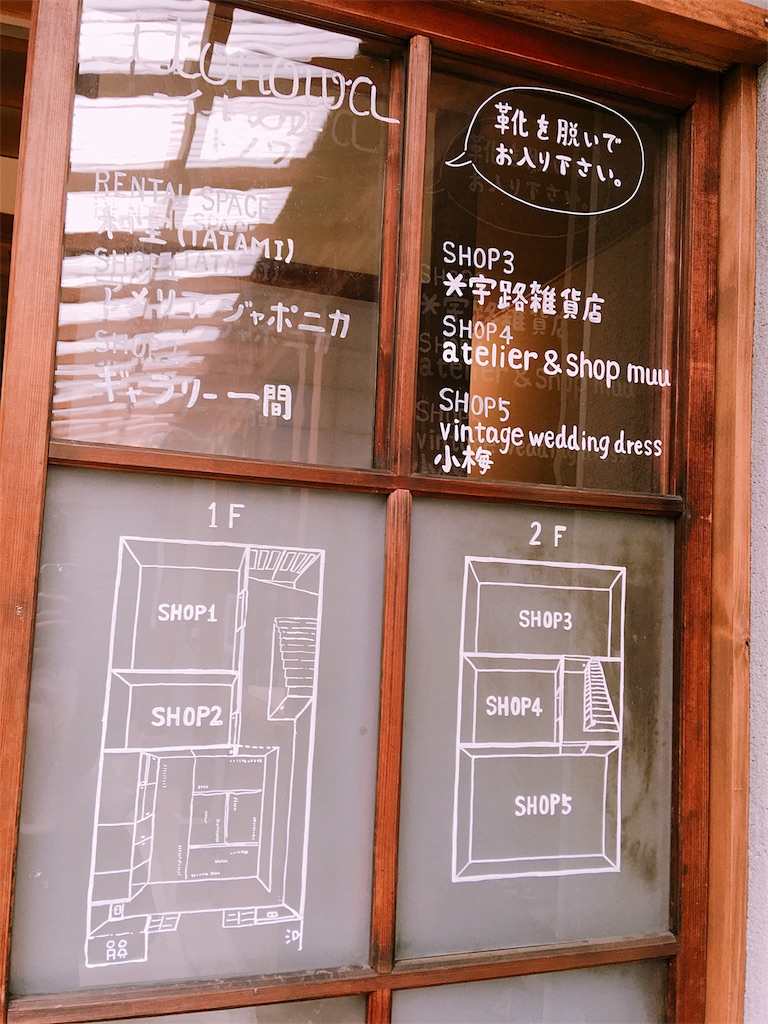 Itonowa
RENTAL SPACE
和室 (TATAMI)
ジャポニカ
ギャラリー一間
靴を脱いで
お入り下さい。
SHOP3
米字路雑貨店
SHOP4
atelier & shop muu
SHOP5
vintage wedding dress
小梅
1F
SHOP1
SHOP2
2F
SHOP3
SHOP4
SHOP5